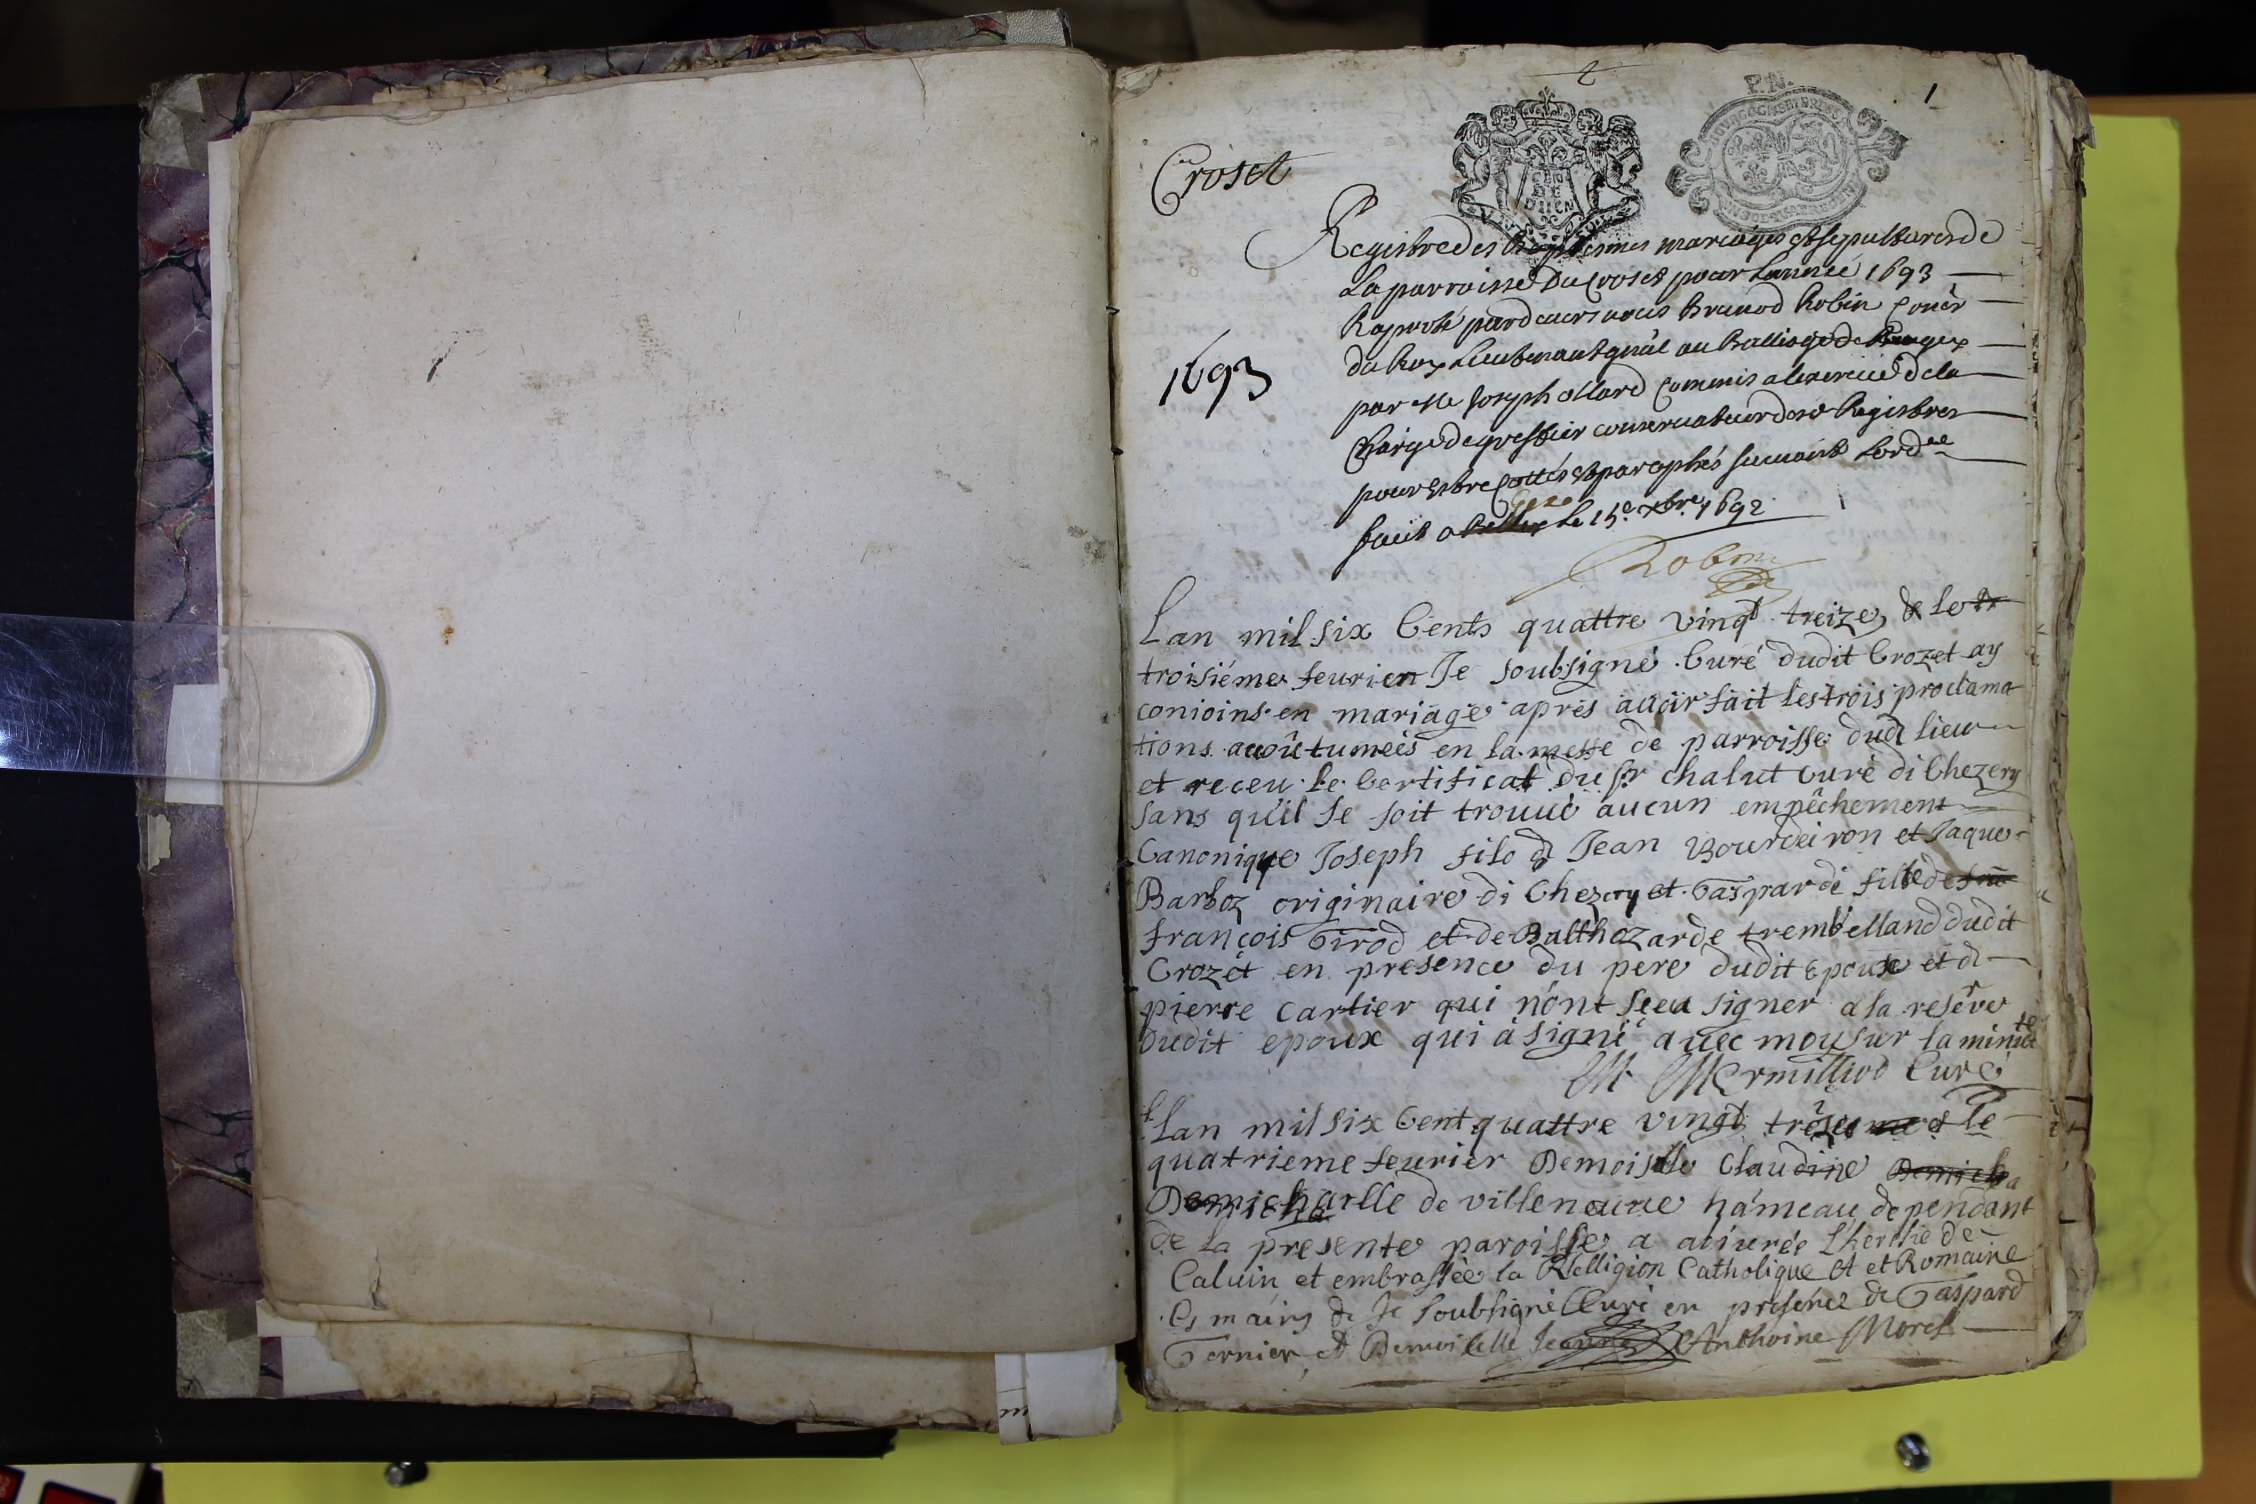 1
Croset
1693
Registre des Baptesmes mariages et sepultures de
La parroisse Du Croset pour Lannée 1693
par Me Joseph
Charge de greffier conservateur desd Registres
pour Estre Cottés et paraphés suivant Lordce
fait a le 15e xbre 1692
Robin
Lan mil six Cents quattre vingt treize le
troisiéme feurier Je soubsigné Curé dudit Crozet ay
conioins en mariage aprés auoir fait les trois proclama
tions acoûtumeés en la messe de parroisse dud lieu
et receu le Certificat du Sr chalut curé di Chezery
sans qu'il se soit trouué aucun empêchement
Canonique Joseph fils d Jean Bourdeiron et Jaque
Barboz originaire di Chezery et Gasparde fille de
françois Girod et de Balthazarde trembelland dudit
Crozét en presence du pere dudit epoux et d
pierre Cartier qui n'ont sceu signer a la reserve
Dudit epoux qui à signé auec moy sur la minute
M Mermilliod Curé
Lan mil six Cent quattre vingt treze le
quatrieme feurier Demoiselle Claudine
de villeneuue hámeau dependant
de la presente paroisse a abiurée Lheresie de
Caluin et embrassée la Relligion Catholique A et Romaine
Es mains de Je soubsigné Curé en presence de Gaspard
Gernier et Demoiselle Anthoine Morel